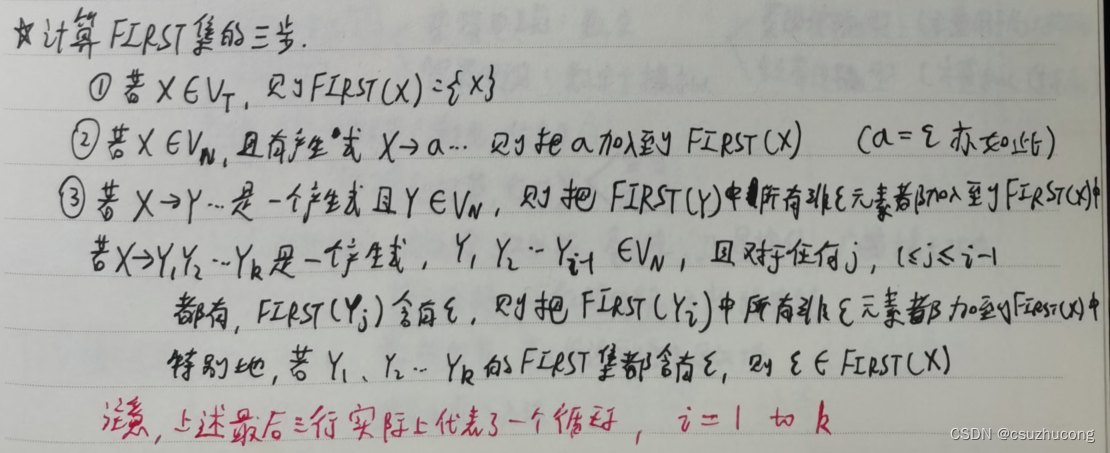 ☆计算FIRST集的三步.
①若X∈V_T, 则FIRST(X)={X}
②若X∈V_N, 且有产生式 X→a… 则把a加入到FIRST(X) (a=ε亦如此)
③若X→Y…是一个产生式且Y∈V_N, 则把FIRST(Y)中所有非ε元素都加入到FIRST(X)中
若X→Y₁Y₂…Y_k是一个产生式, Y₁ Y₂…Y_{i-1}∈V_N, 且对于任何j, 1≤j≤i-1
都有, FIRST(Y_j)含有ε, 则把FIRST(Y_i)中所有非ε元素都加至到FIRST(X)中
特别地, 若Y₁、Y₂…Y_k的FIRST集都含有ε, 则ε∈FIRST(X)
注意, 上述最后三行实际上代表了一个循环, i=1 to k
CSDN @csuzhucong